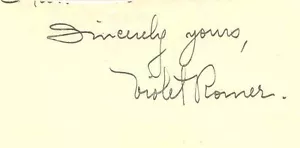 Sincerely yours,
Violet Romer.